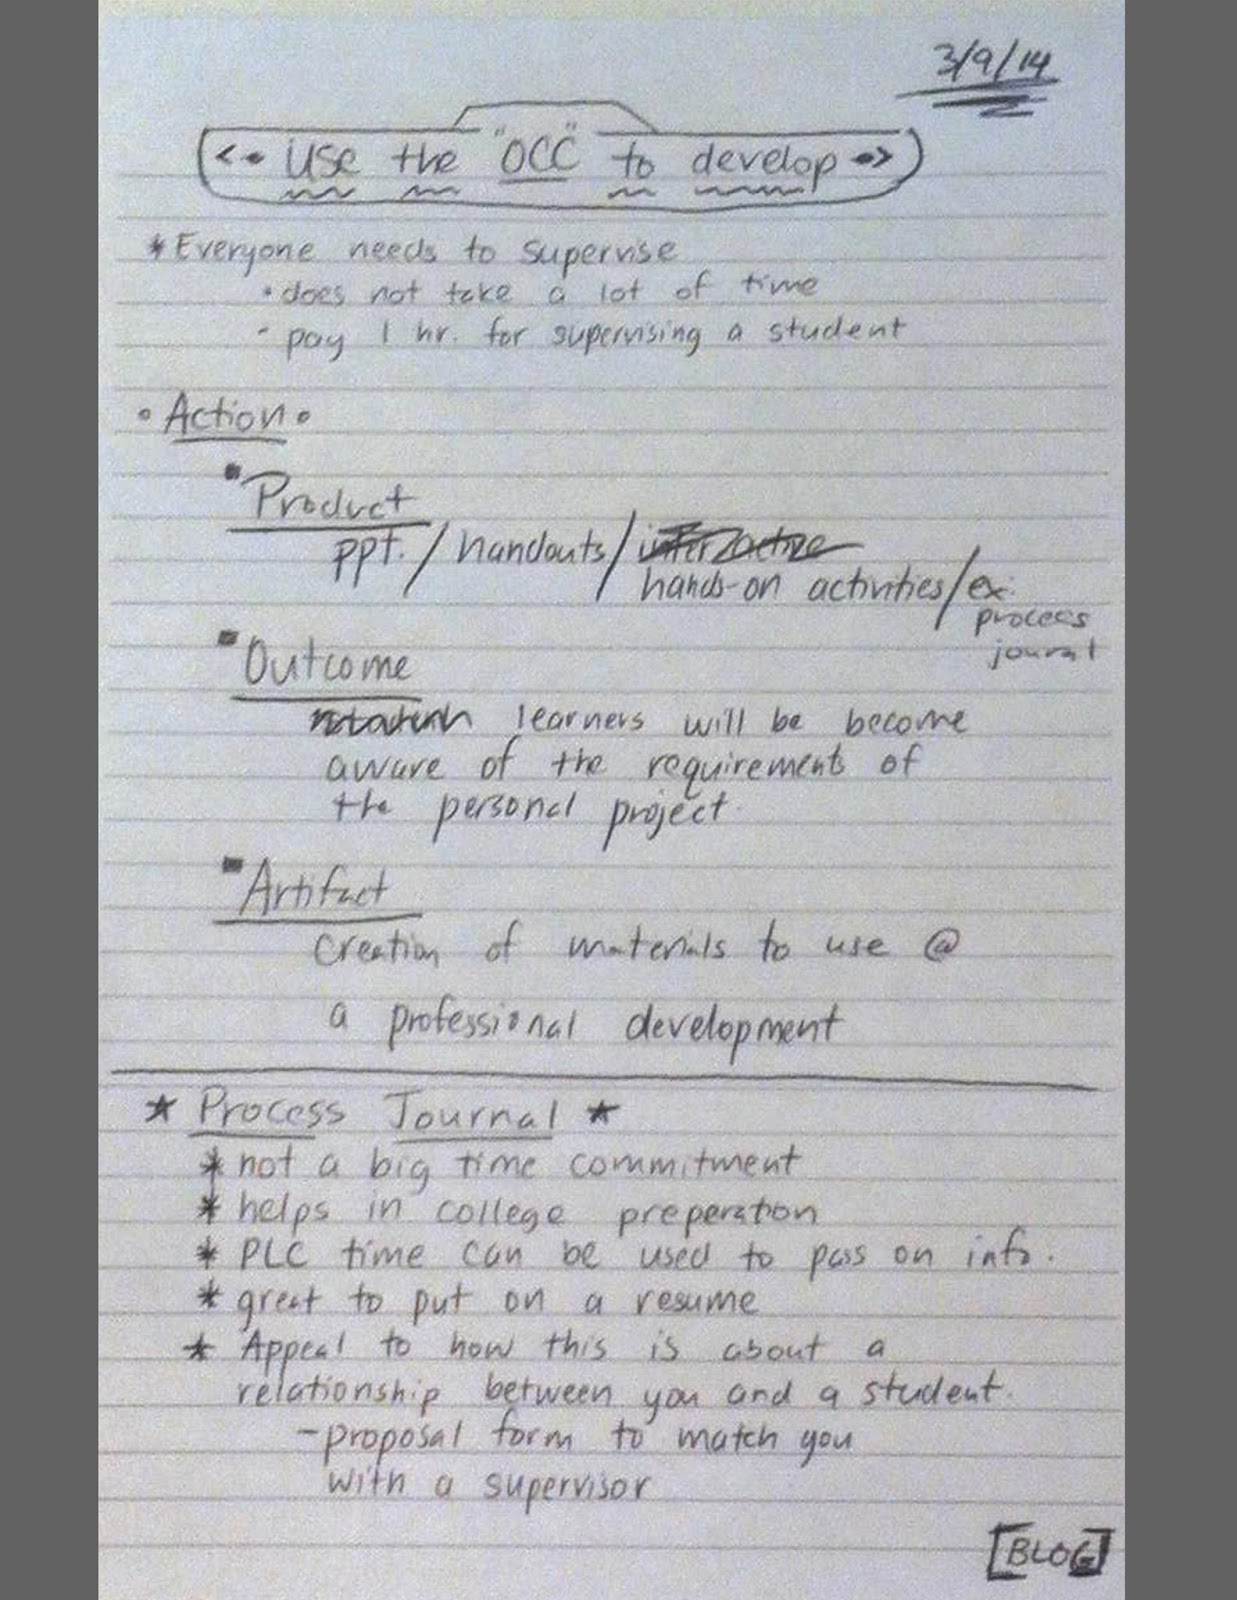 3/9/14
<• Use the "OCC" to develop •>
* Everyone needs to supervise
• does not take a lot of time
- pay 1 hr. for supervising a student
• Action •
▪ Product
ppt. / handouts / interactive
hands-on activities / ex:
process
journal
▪ Outcome
learners will be become
aware of the requirements of
the personal project.
▪ Artifact
Creation of materials to use @
a professional development
★ Process Journal ★
* not a big time commitment
* helps in college preperation
* PLC time can be used to pass on info.
* great to put on a resume
* Appeal to how this is about a
relationship between you and a student.
- proposal form to match you
with a supervisor
[BLOG]